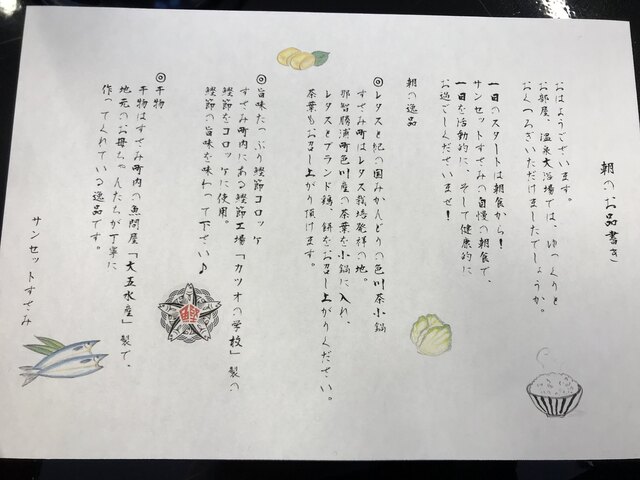 朝のお品書き
おはようございます。
お部屋、温泉大浴場では、ゆっくりと
おくつろぎいただけましたでしょうか。
一日のスタートは朝食から！
サンセットすさみの自慢の朝食で、
一日を活動的に、そして健康的に
お過ごしくださいませ！
朝の逸品
◎レタスと紀の国みかんどりの色川茶小鍋
すさみ町はレタス栽培発祥の地。
那智勝浦町色川産の茶葉を小鍋に入れ、
レタスとブランド鶏、餅をお召し上がりください。
茶葉もお召し上がり頂けます。
◎旨味たっぷり鰹節コロッケ
すさみ町内にある鰹節工場「カツオの学校」製の
鰹節をコロッケに使用。
鰹節の旨味を味わって下さい♪
◎干物
干物はすさみ町内の魚問屋「大五水産」製で、
地元のお母ちゃんたちが丁寧に
作ってくれている逸品です。
サンセットすさみ
鰹